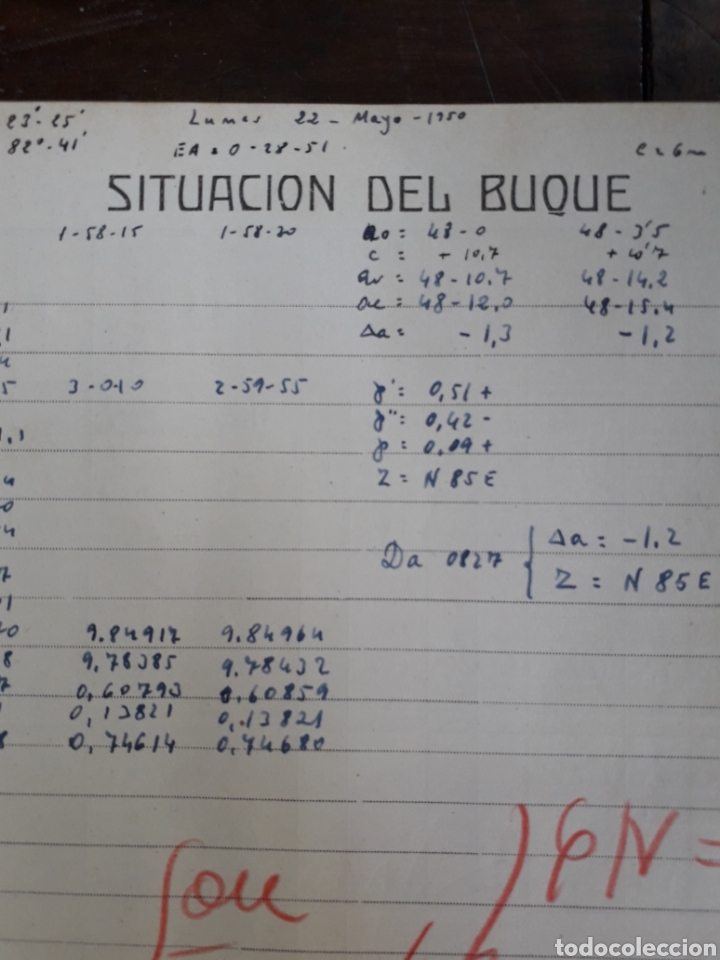 23'-25'
Lunes 22 - Mayo - 1950
82º-41'
EA = 0-28-51
e = 6m
SITUACION DEL BUQUE
1-58-15 1-58-20 ao = 48-0 48-3'5
c = + 10,7 + 10'7
av = 48-10.7 48-14.2
ae = 48-12,0 48-15.4
Δa = - 1,3 - 1,2
3-0-10 2-59-55 p' = 0,51 +
p'' = 0,42 -
p = 0.09 +
Z = N 85 E
Da 0827 { Δa = -1.2
Z = N 85 E
9.84917 9.84964
9,78385 9.78432
0,60793 0,60859
0,13821 0,13821
0,74614 0,74680
PN =
todocoleccion